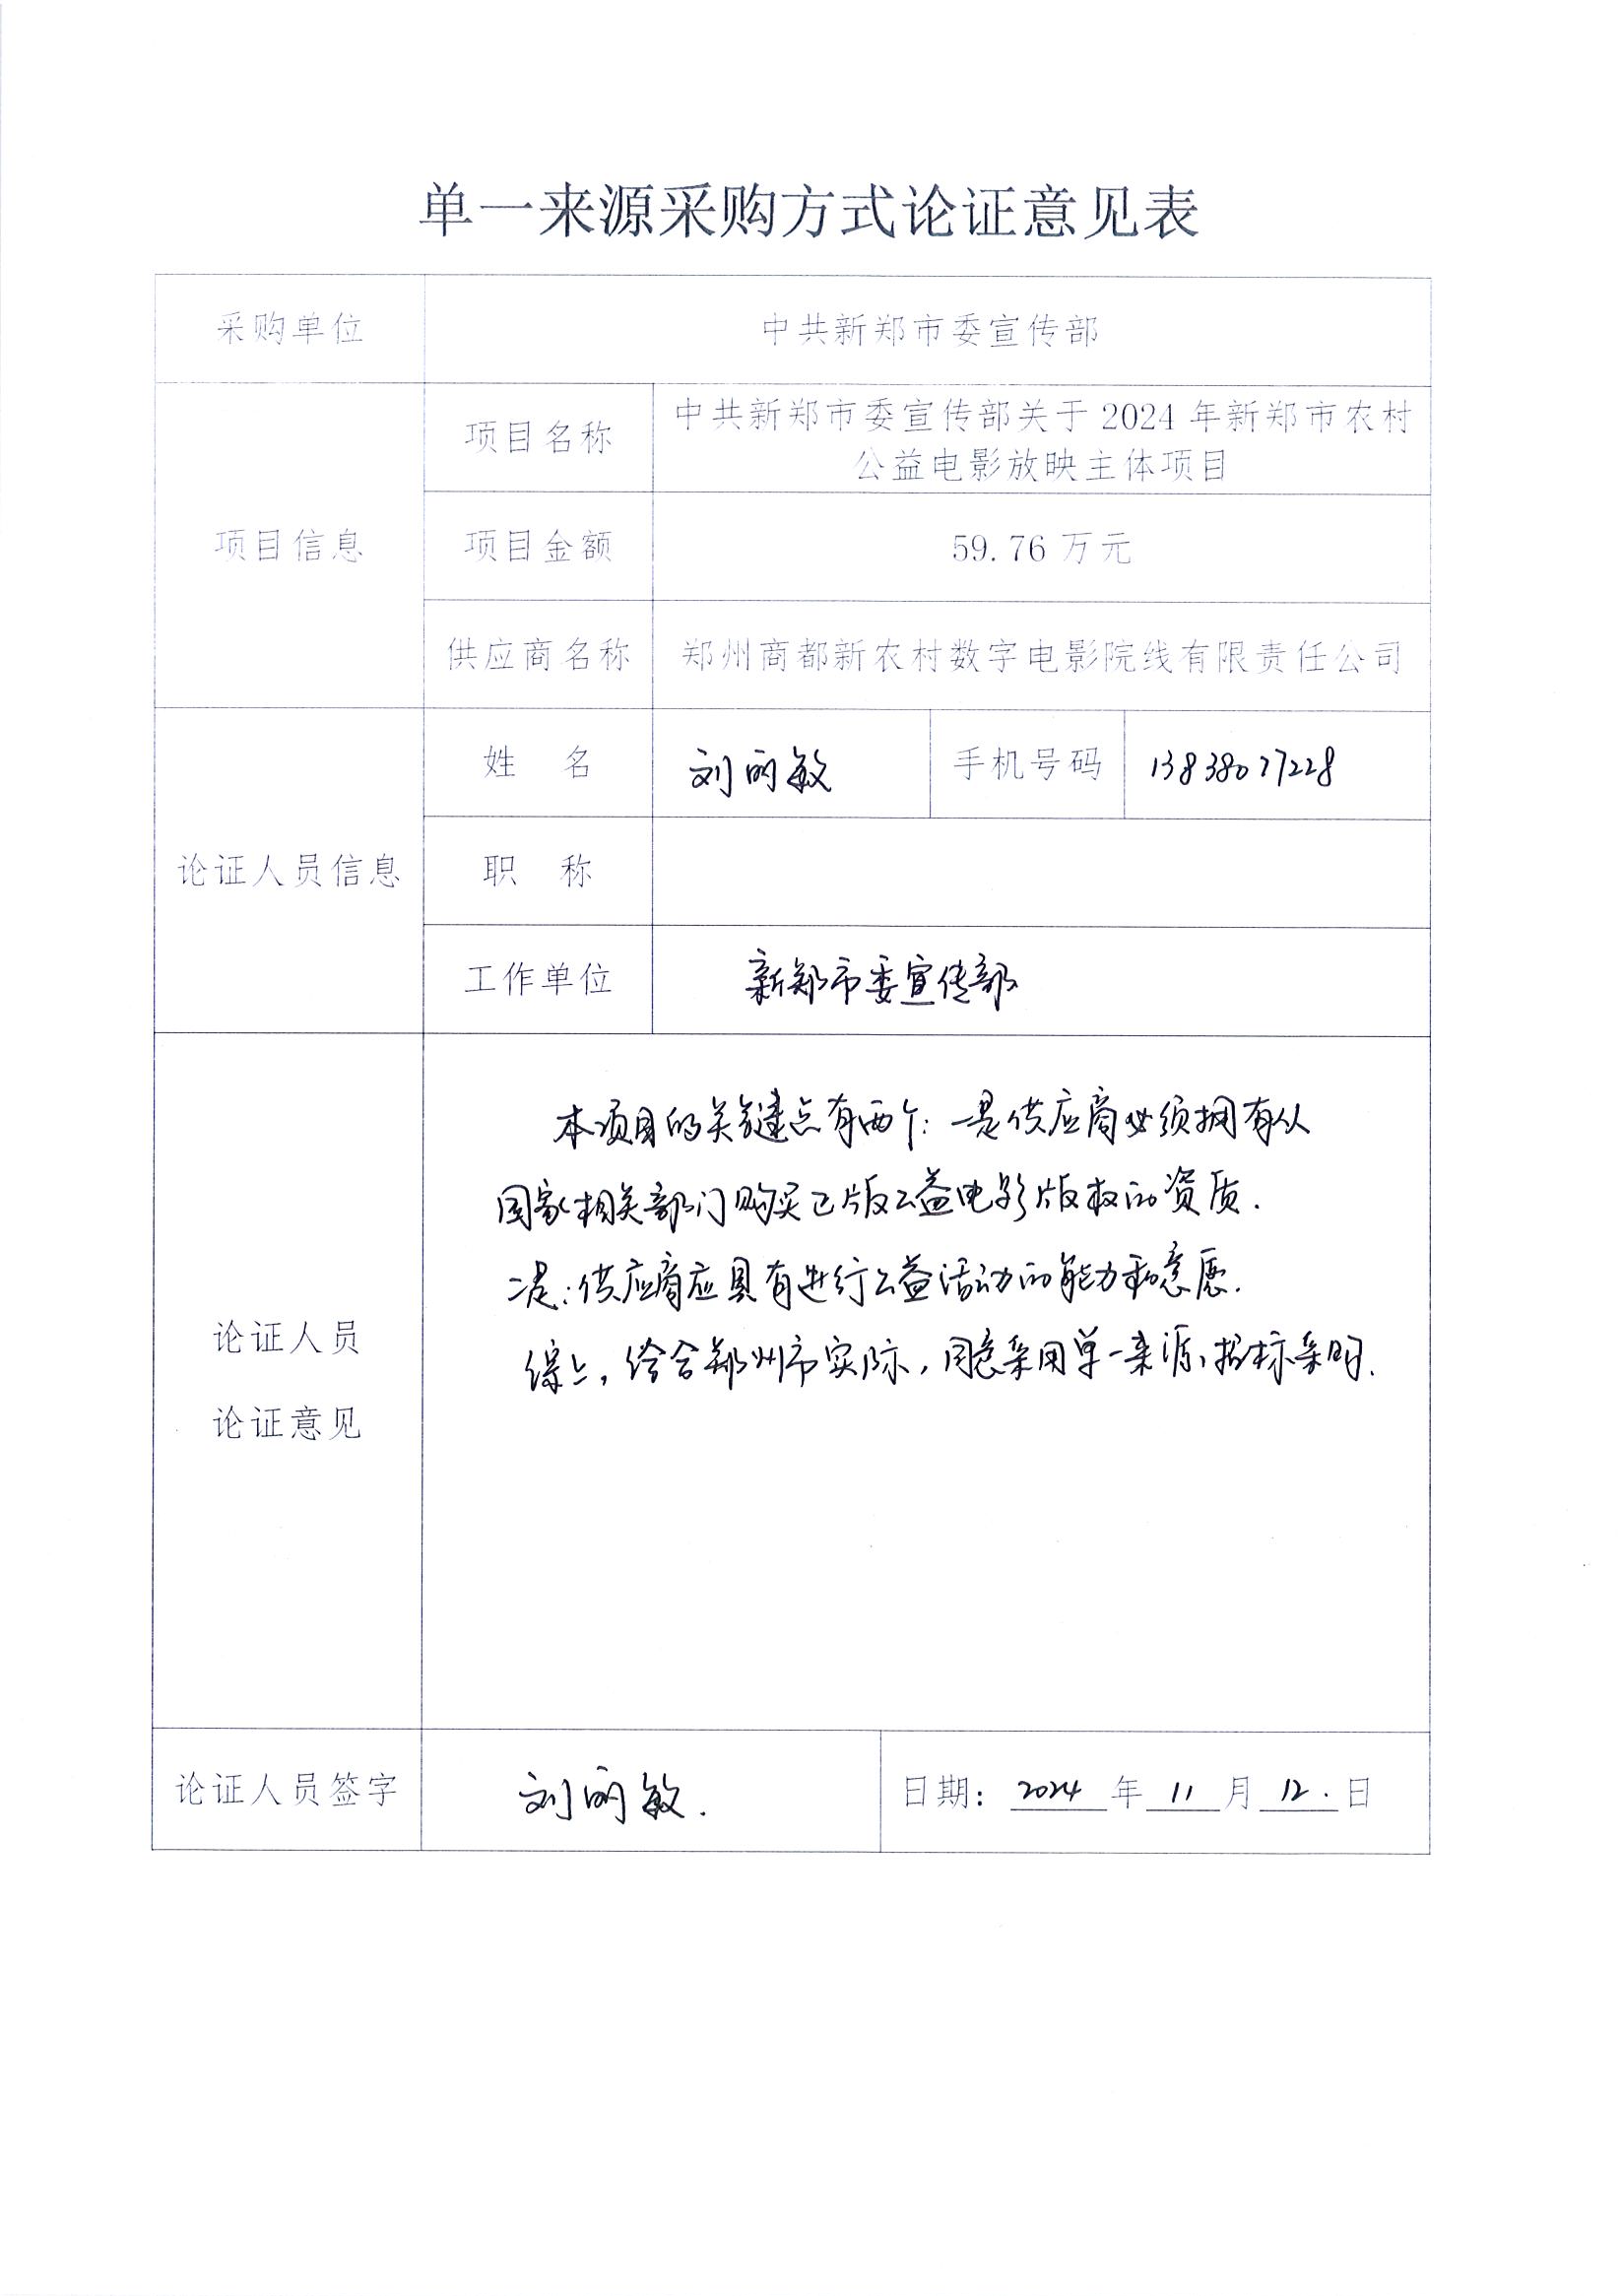 单一来源采购方式论证意见表
采购单位
中共新郑市委宣传部
项目信息
项目名称
中共新郑市委宣传部关于 2024 年新郑市农村
公益电影放映主体项目
项目金额
59.76 万元
供应商名称
郑州商都新农村数字电影院线有限责任公司
论证人员信息
姓 名
刘丽敏
手机号码
13838077228
职 称
工作单位
新郑市委宣传部
论证人员
论证意见
本项目的关键点有两个：一是供应商必须拥有从
国家相关部门购买正版公益电影版权的资质.
二是：供应商应具有进行公益活动的能力和意愿.
综上，结合郑州市实际，同意采用单一来源招标采购.
论证人员签字
刘丽敏.
日期：2024 年 11 月 12. 日